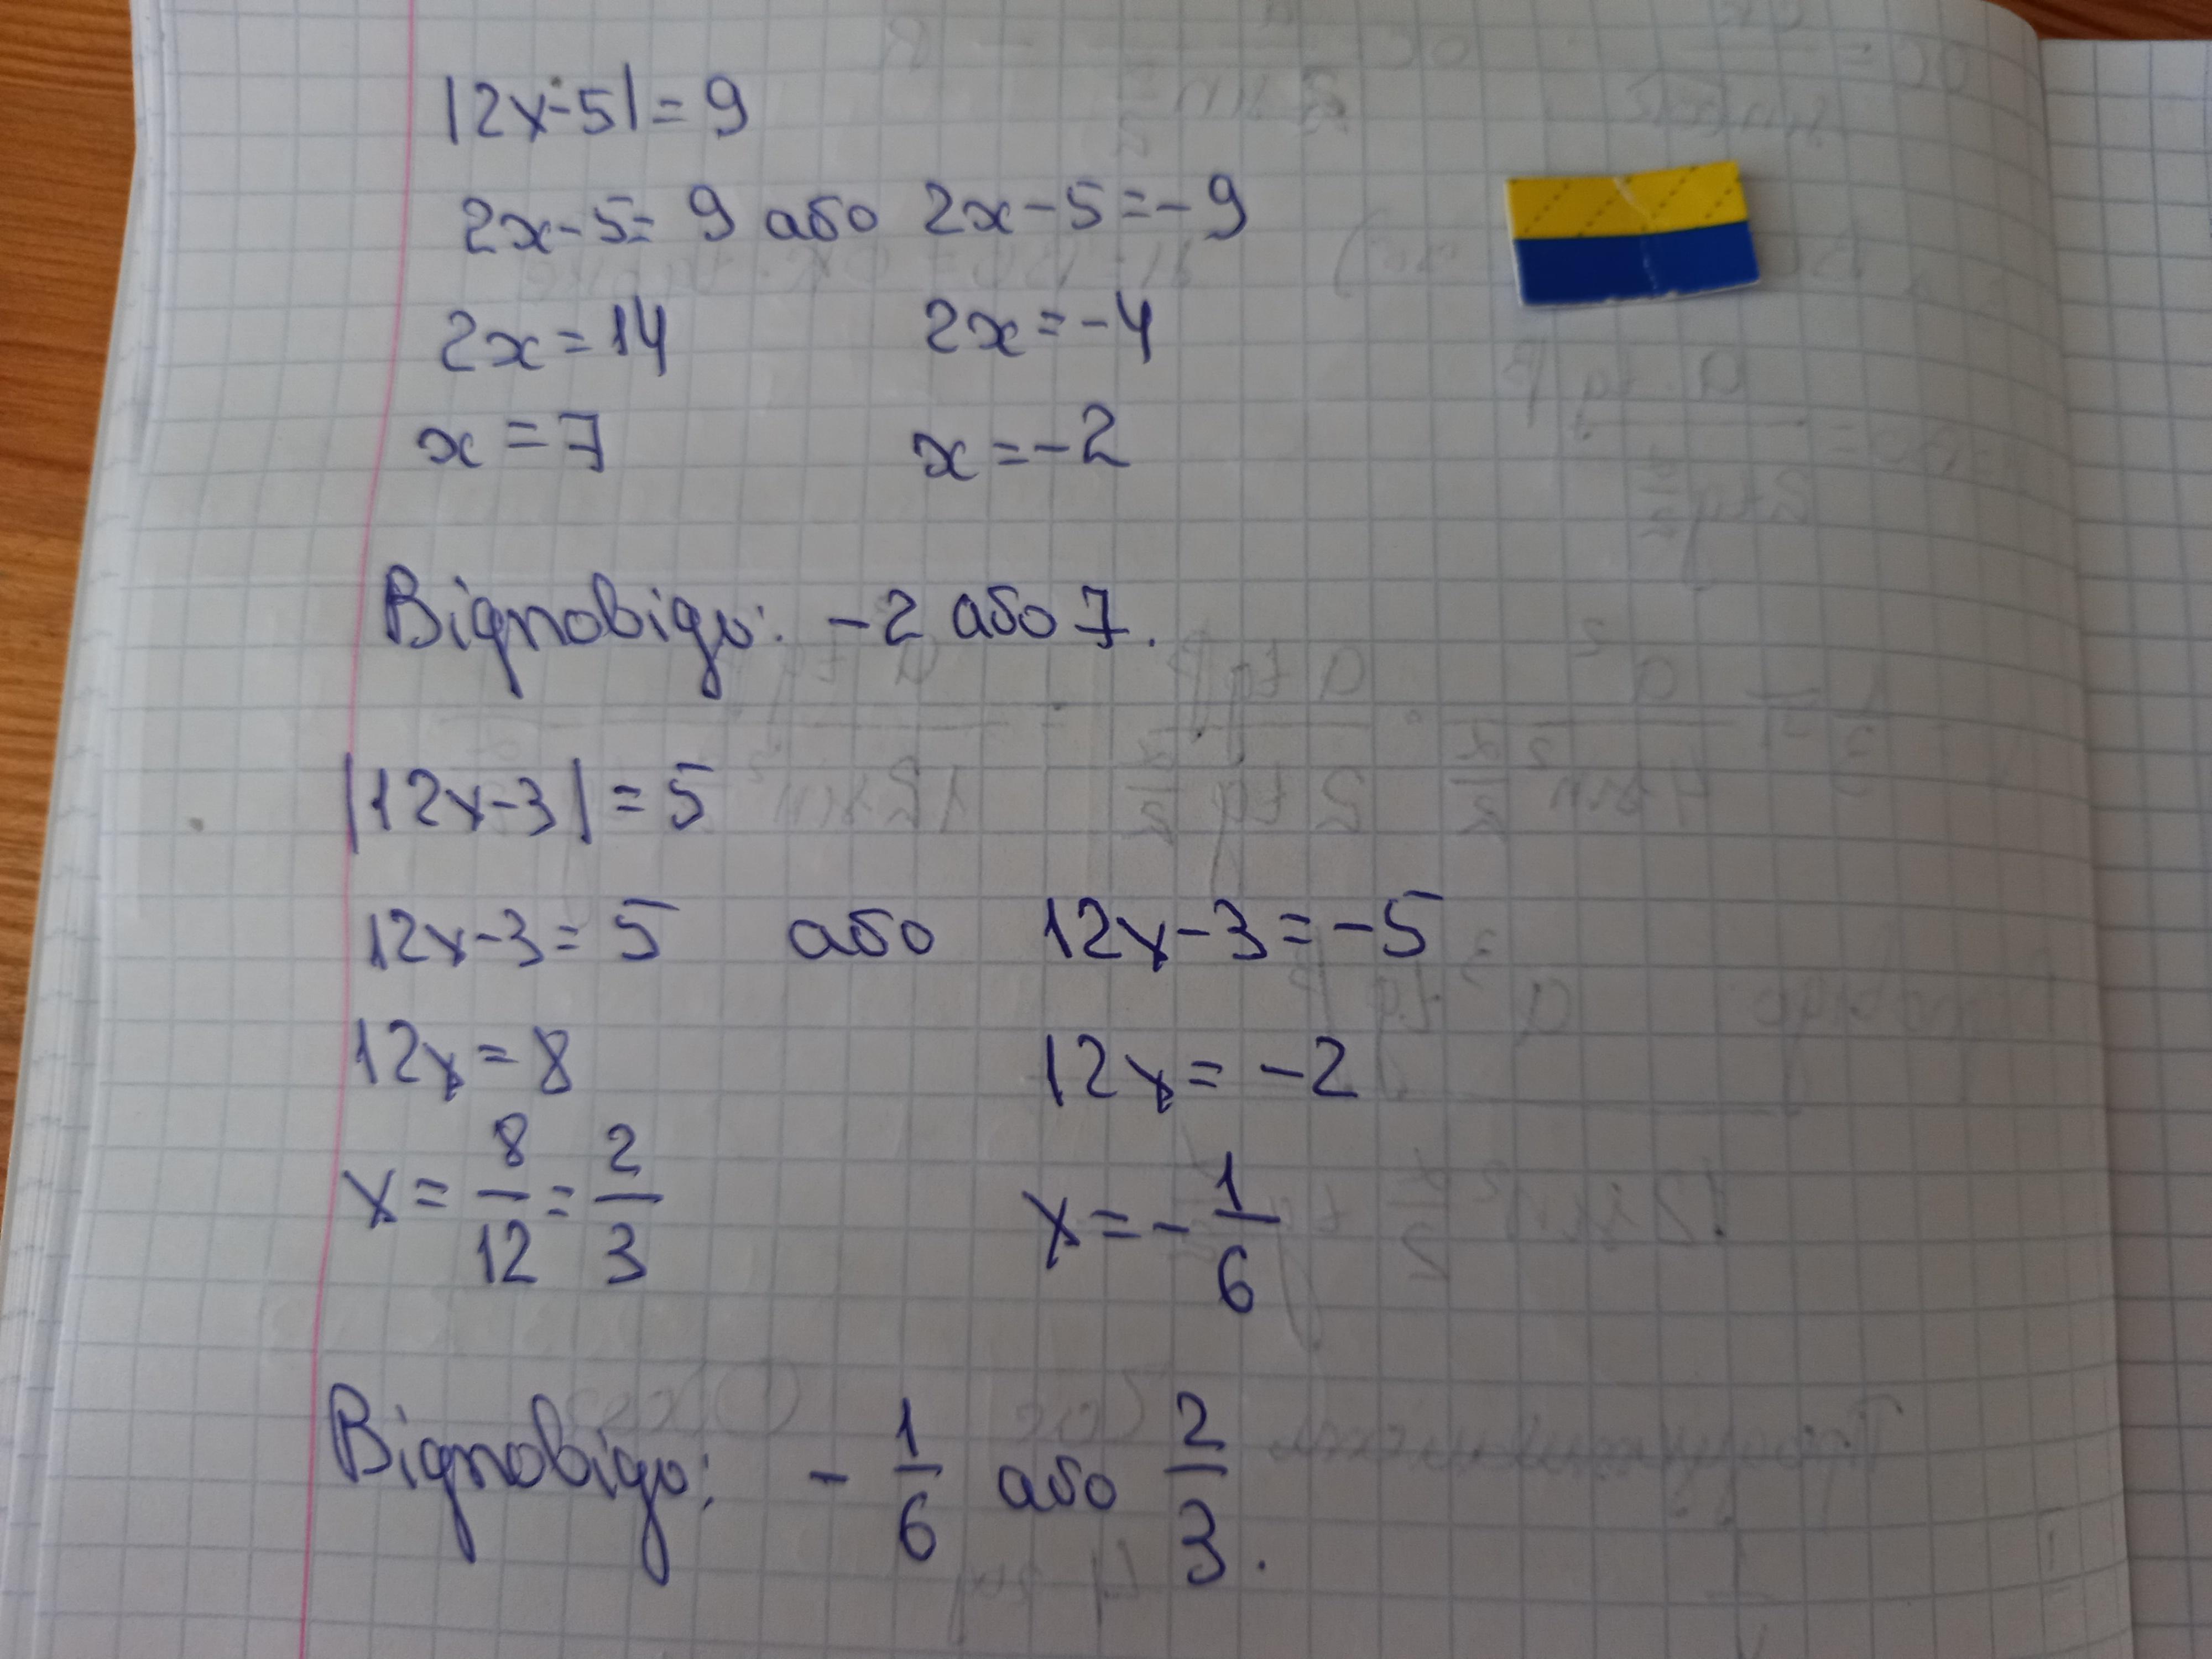 |2x-5|=9
2x-5=9 або 2x-5=-9
2x=14 2x=-4
x=7 x=-2
Відповідь: -2 або 7.
|12x-3|=5
12x-3=5 або 12x-3=-5
12x=8 12x=-2
x=8/12=2/3 x=-1/6
Відповідь: -1/6 або 2/3.